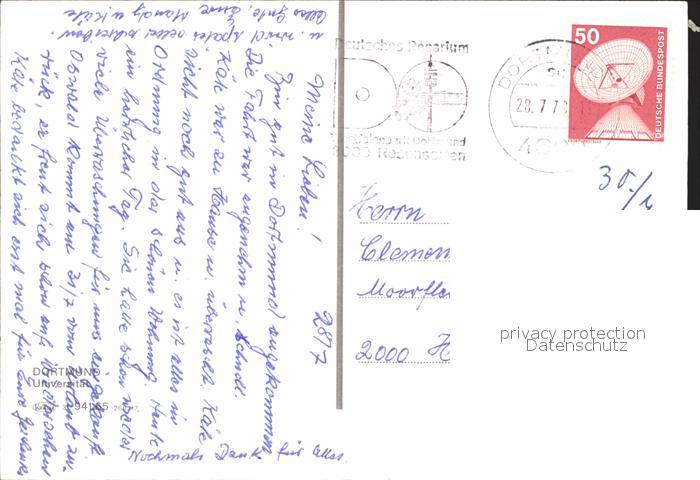 Meine Lieben! 28/7
Bin gut in Dortmund angekommen
Die Fahrt war angenehm u. schnell.
Käte war zu Hause u. überrascht. Käte
sieht noch gut aus u. es ist alles in
Ordnung in der schönen Wohnung. Heute
ein herrlicher Tag. Sie hatte schon wieder
viele Überraschungen für uns
Oswald kommt am 31/7 vom Urlaub zu-
rück, er freut sich schon aufs Wiedersehen
Käte bedankt sich erst mal für Eure
u. wird später selber schreiben.
Alles Gute, Eure Mandy u. Käte
Nochmals Dank für Alles.
DORTMUND
Universität
94165
Deutsches Rosarium
Westfalenpark Dortmund
3000 Rosensorten
DORTMUND
28.7.7
46
50
DEUTSCHE BUNDESPOST
30,/
Herrn
Clemen
Moorfle
2000 H
privacy protection
Datenschutz